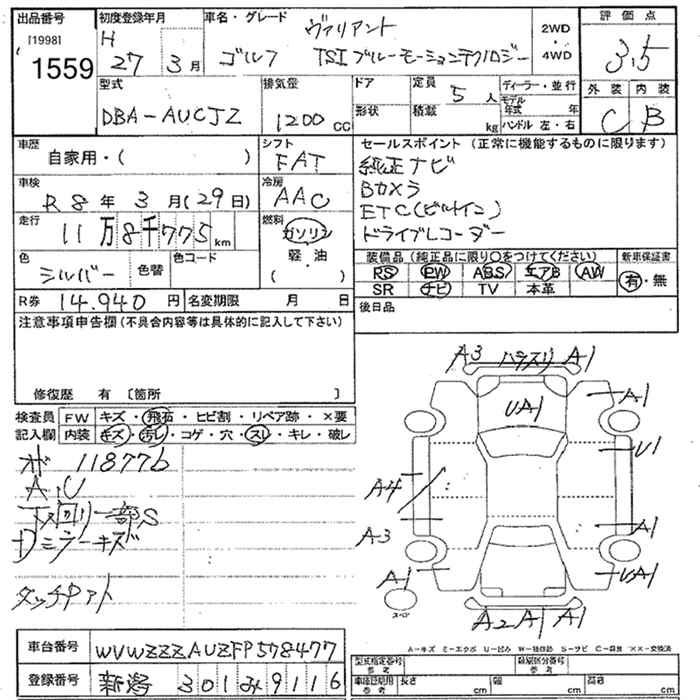 出品番号
[19981]
1559
初度登録年月
H 27 3月
車名・グレード
ヴァリアント
ゴルフ TSIブルーモーションテクノロジー
2WD・4WD
評価点
3.5
外装 内装
C B
型式
DBA-AUCJZ
排気量
1200 CC
ドア
形状
定員 5人
積載 kg
ディーラー・並行
モデル年式 年
ハンドル 左・右
車歴
自家用・( )
シフト
FAT
車検
R8年3月(29日)
冷房
AAC
走行
11万8千775km
燃料
ガソリン
軽・油
・( )
色
シルバー
色替
色コード
R券 14.940円
名変期限 月 日
セールスポイント(正常に機能するものに限ります)
純正ナビ
Bカメラ
ETC(ビルトイン)
ドライブレコーダー
装備品(純正品に限り○をつけてください)
新車保証書
PS PW ABS エアB AW
SR ナビ TV 本革
有・無
後日品
注意事項申告欄(不具合内容等は具体的に記入して下さい)
修復歴 有 〔箇所 〕
検査員記入欄
FW キズ・飛石・ヒビ割・リペア跡・×要
内装 キズ・汚レ・コゲ・穴・スレ・キレ・破レ
118776
A,U
下回り一部S
Dミラーキズ
A3 ハラスリ A1
A1
UA1
U1
A4
A3
A1
A1
UA1
スペア
A2 A1 A1
A-キズ ミ-エクボ U-凹み W-補修跡 S-サビ C-腐蝕 ××-交換済
車台番号 WVWZZZAUZFP578477
登録番号 新潟 301 み 9116
型式指定番号 参考
類別区分番号 参考
車体即寸用 参考
長さ cm
幅 cm
高さ cm